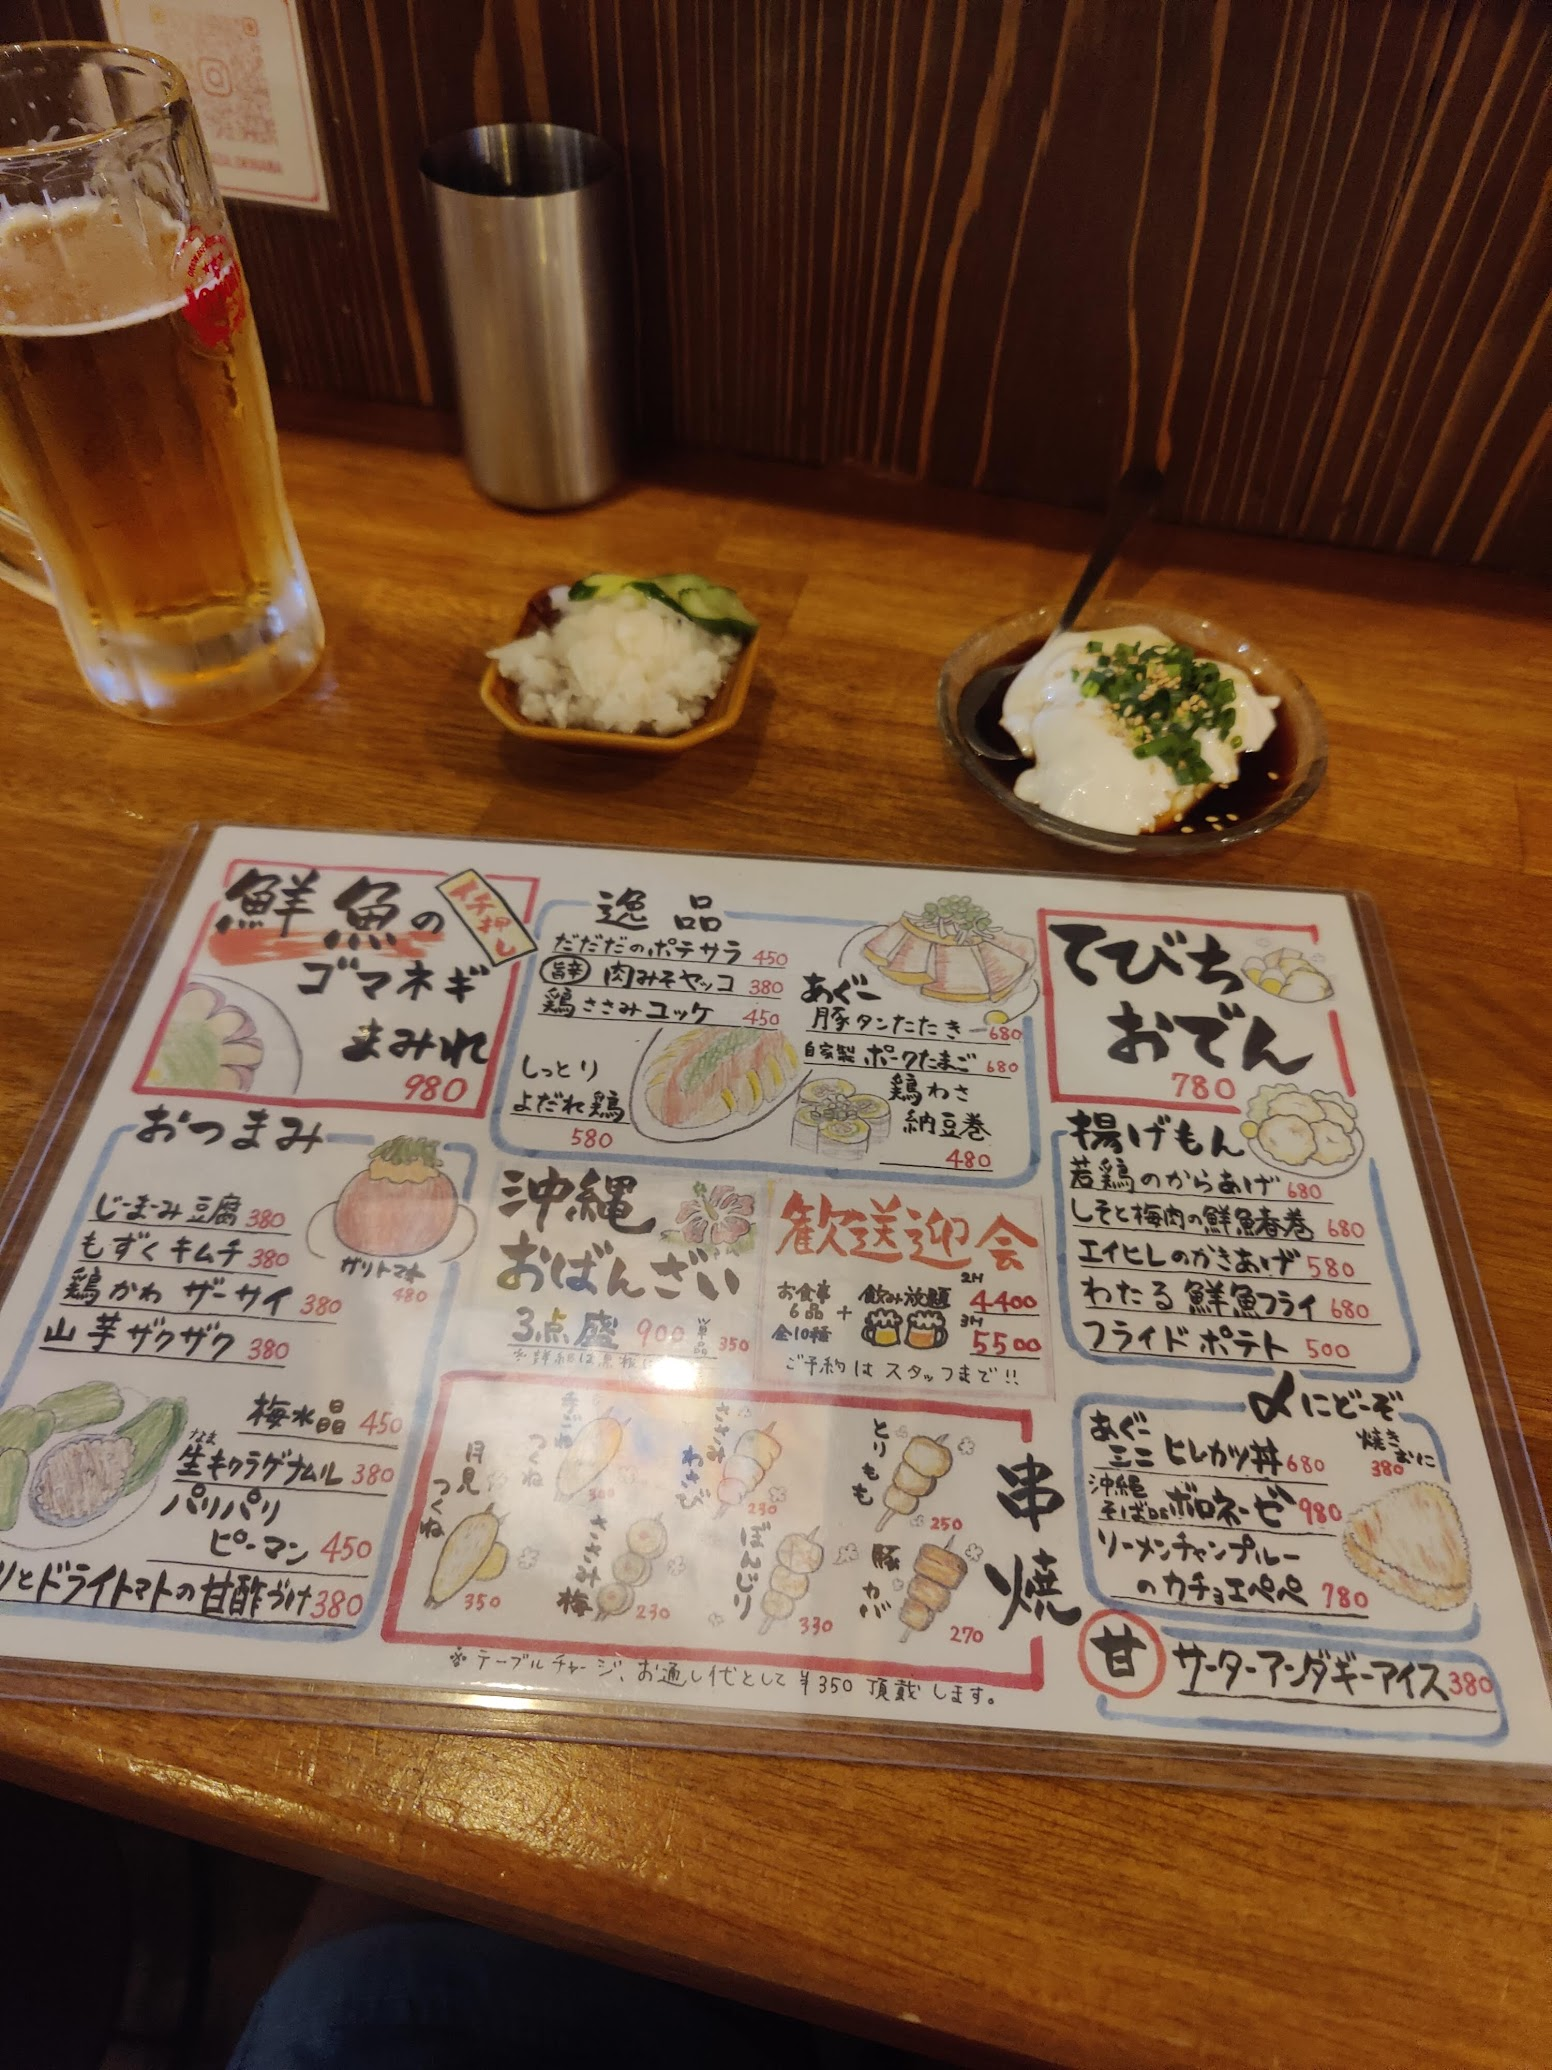 鮮魚の
イチ押し
ゴマネギ
まみれ
980
おつまみ
じーまーみ豆腐 380
もずくキムチ 380
鶏かわザーサイ 380
山芋ザクザク 380
ガリトマト
480
梅水晶 450
なま
生キクラゲナムル 380
パリパリ
ピーマン 450
とドライトマトの甘酢づけ 380
逸品
だだだのポテサラ 450
旨辛 肉みそヤッコ 380
鶏ささみユッケ 450
しっとり
よだれ鶏
580
あぐー
豚タンたたき 680
自家製 ポークたまご 680
鶏わさ
納豆巻
480
沖縄
おばんざい
3点盛 900 単品 350
歓送迎会
お食事
6品
全10種
+
飲み放題
2H 4400
3H 5500
ご予約はスタッフまで!!
串焼
月見
つくね
350
手ごね
つくね
300
ささみ
わさび
230
とりもも
250
ささみ
梅
230
ぼんじり
330
豚カブ
270
※テーブルチャージ、お通し代として¥350頂戴します。
てびち
おでん
780
揚げもん
若鶏のからあげ 680
しそと梅肉の鮮魚春巻 680
エイヒレのかきあげ 580
わたる鮮魚フライ 680
フライドポテト 500
〆にどーぞ
あぐー
ミニ ヒレカツ丼 680
焼き
おに
380
沖縄
そばDEボロネーゼ 980
ソーメンチャンプルー
のカチョエペペ 780
甘 サーターアンダギーアイス 380